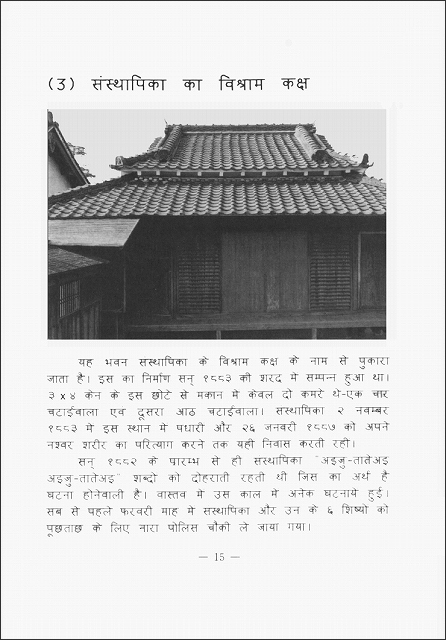 (3) संस्थापिका का विश्राम कक्ष
यह भवन संस्थापिका के विश्राम कक्ष के नाम से पुकारा
जाता है। इस का निर्माण सन् १८८३ की शरद में सम्पन्न हुआ था।
३ x ४ केन के इस छोटे से मकान में केवल दो कमरे थे-एक चार
चटाईवाला एवं दूसरा आठ चटाईवाला। संस्थापिका २ नवम्बर
१८८३ में इस स्थान में पधारी और २६ जनवरी १८८७ को अपने
नश्वर शरीर का परित्याग करने तक यही निवास करती रही।
सन् १८८२ के पारम्भ से ही संस्थापिका "अइजु-तातेअइ
अइजु-तातेअइ" शब्दो को दोहराती रहती थी जिस का अर्थ है
घटना होनेवाली है। वास्तव में उस काल में अनेक घटनाये हुई।
सब से पहले फरवरी माह में संस्थापिका और उन के ६ शिष्यो को
पूछताछ के लिए नारा पोलिस चौकी ले जाया गया।
— 15 —